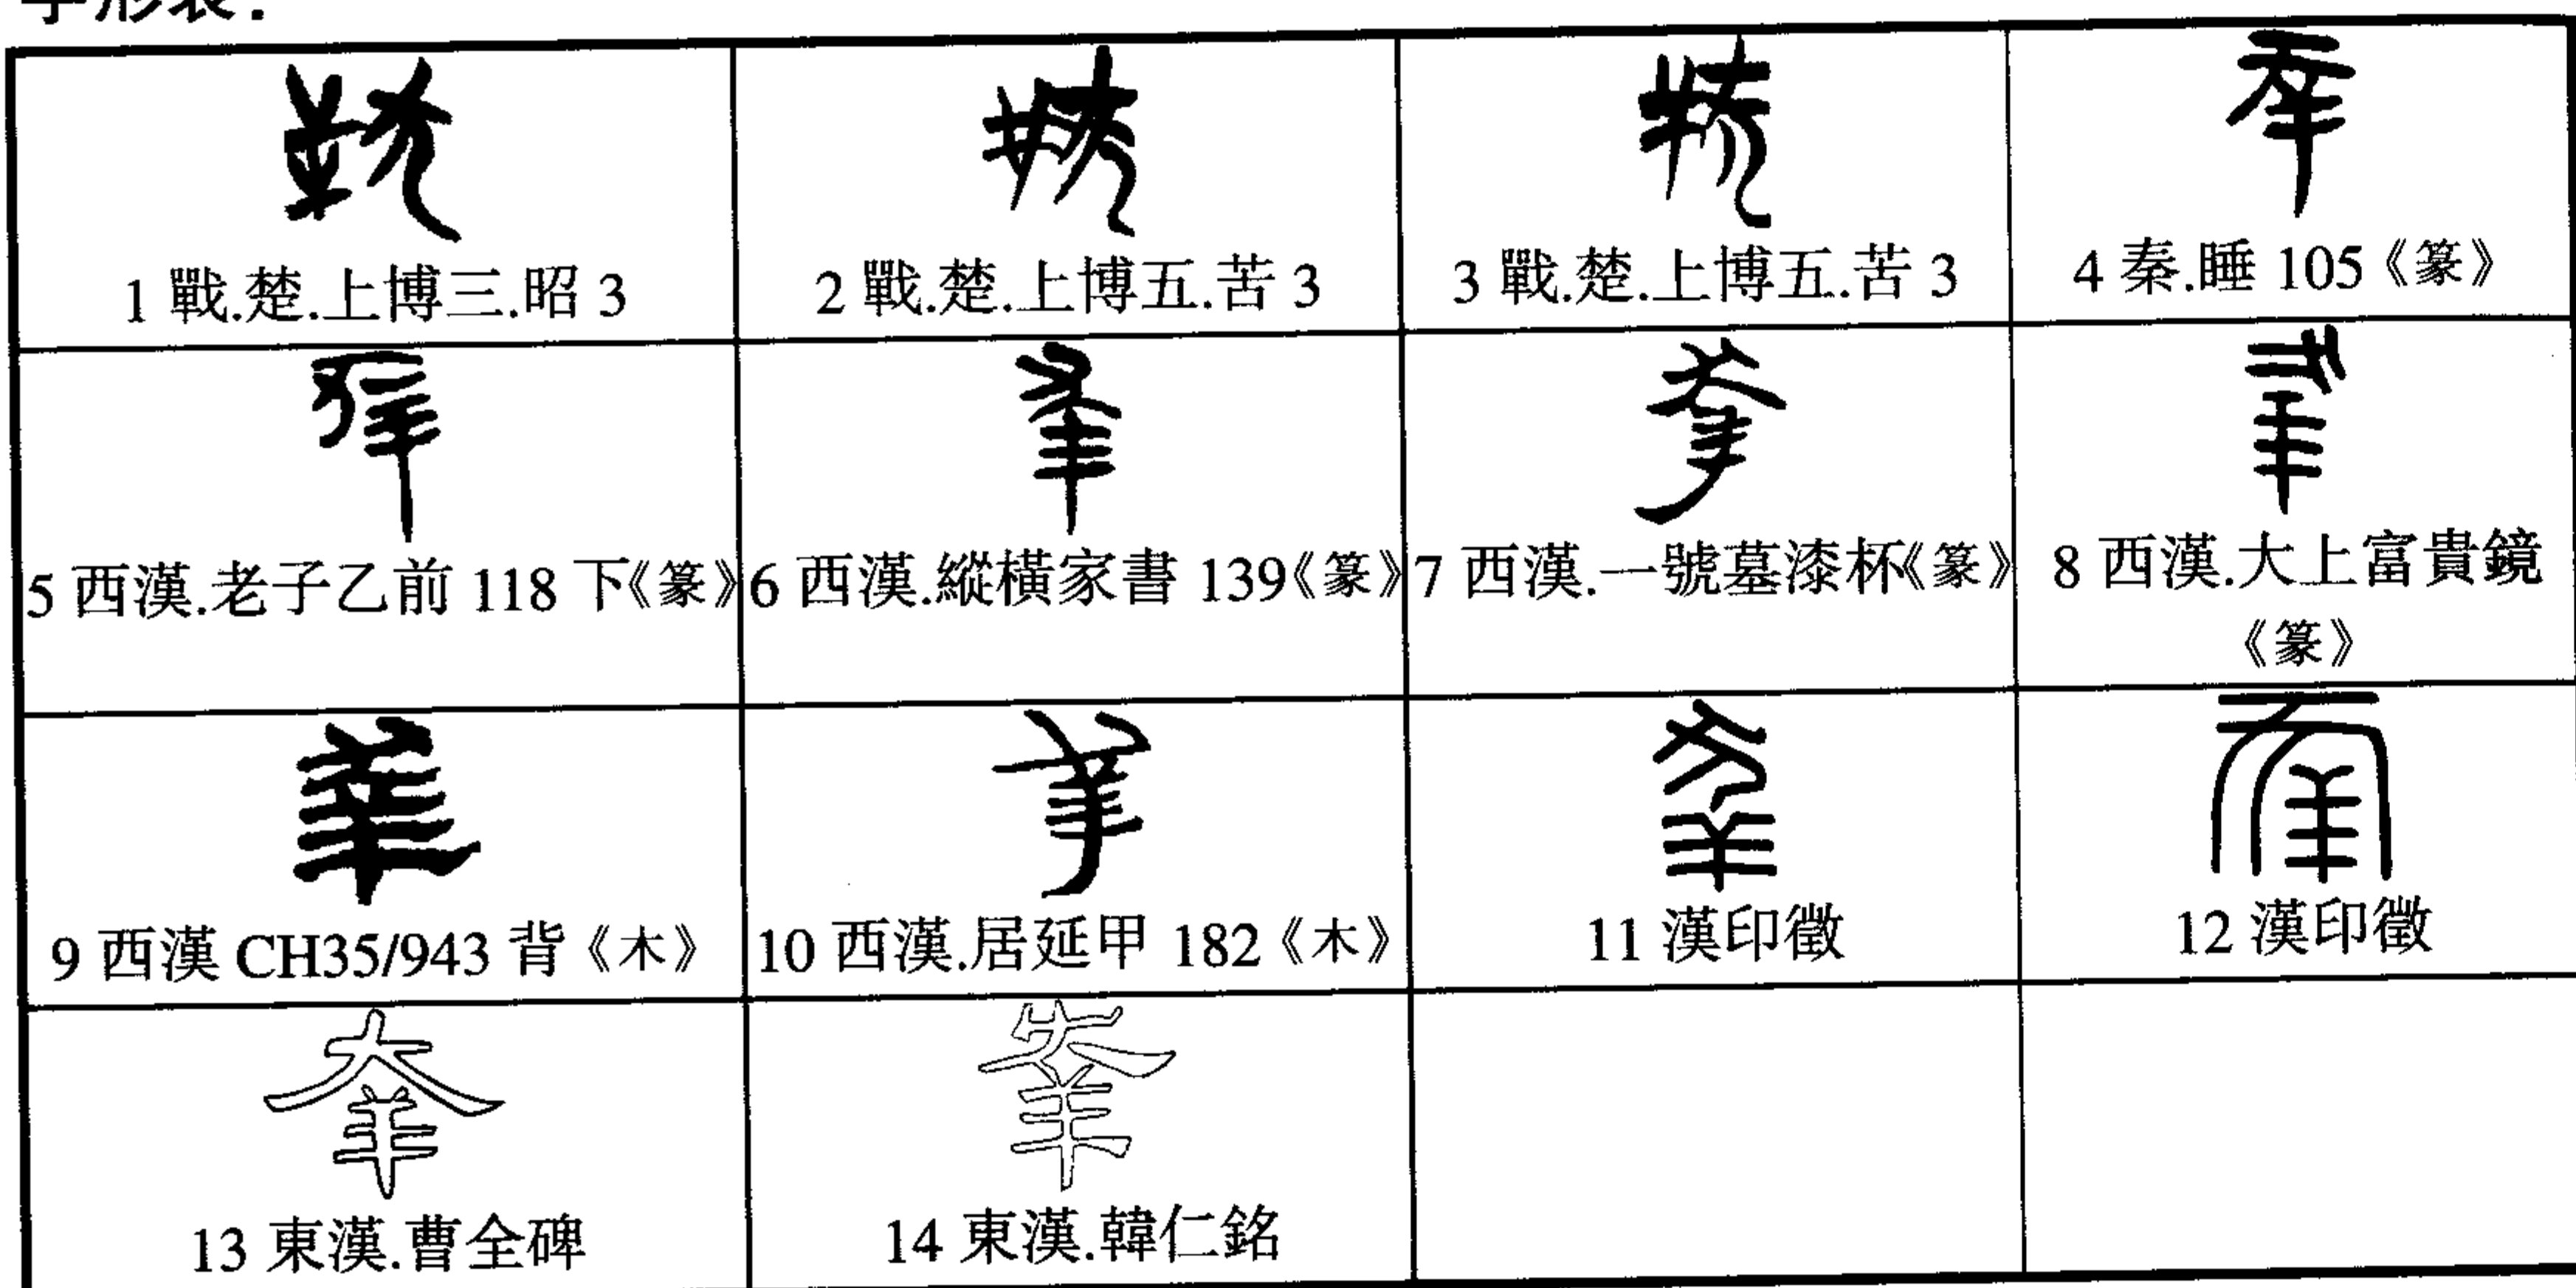 字形表：
1 戰.楚.上博三.昭 3
2 戰.楚.上博五.苦 3
3 戰.楚.上博五.苦 3
4 秦.睡 105《篆》
5 西漢.老子乙前 118 下《篆》
6 西漢.縱橫家書 139《篆》
7 西漢.一號墓漆杯《篆》
8 西漢.大上富貴鏡
《篆》
9 西漢 CH35/943 背《木》
10 西漢.居延甲 182《木》
11 漢印徵
12 漢印徵
13 東漢.曹全碑
14 東漢.韓仁銘